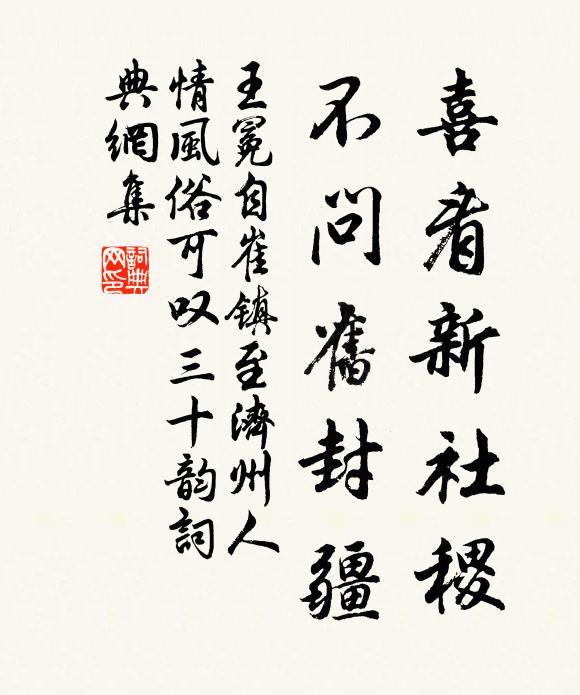 喜看新社稷
不問舊封疆
王冕自崔鎮至濟州人
情風俗可叹三十韵詞
典網集
詞典
网印